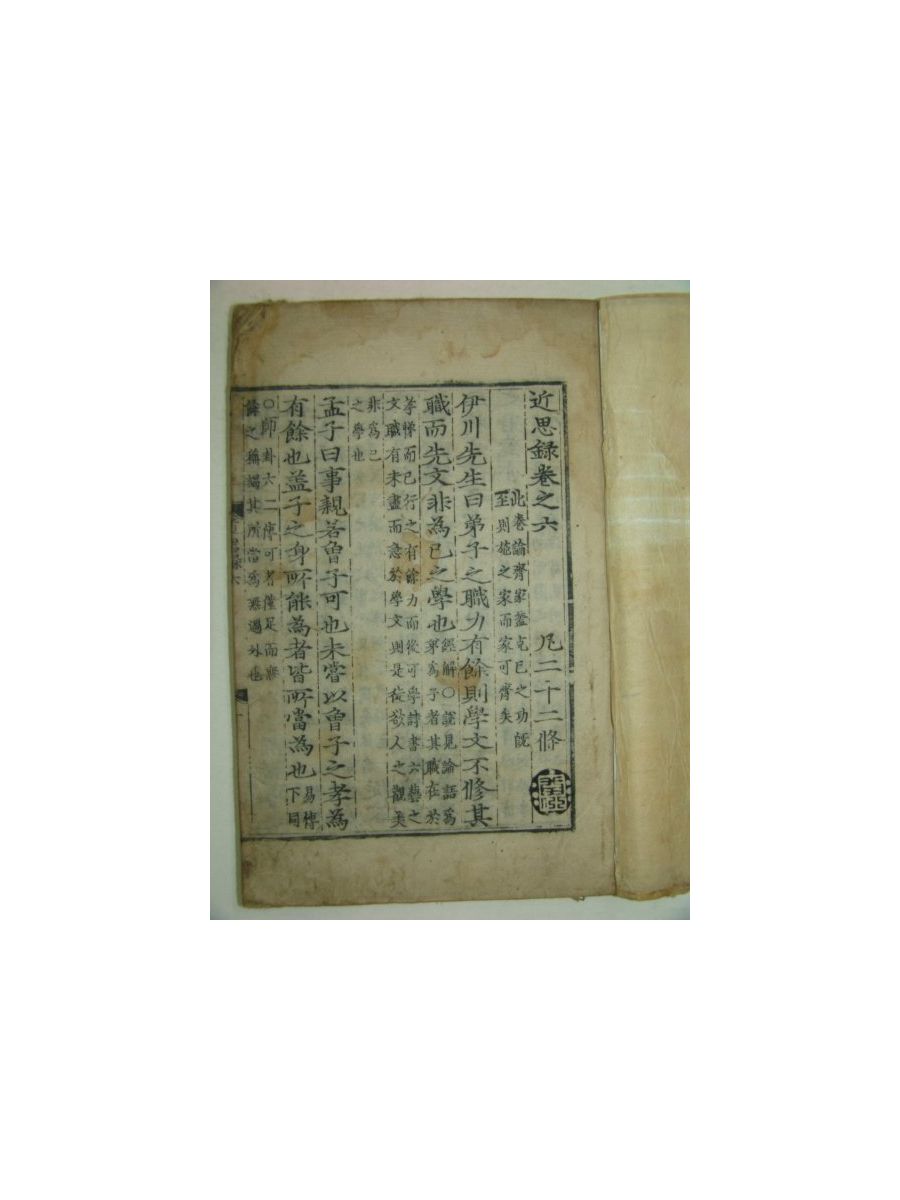 近思録卷之六 凡二十二條
此卷論齊家蓋克己之功既
至則施之家而家可齊矣
伊川先生曰弟子之職力有餘則學文不修其
職而先文非為己之學也 經解○說見論語為弟為子者其職在於
孝悌而已行之有餘力而後可學詩書六藝之
文職有未盡而急於學文則是徒欲人之觀美
非為己
之學也
孟子曰事親若曾子可也未嘗以曾子之孝為
有餘也蓋子之身所能為者皆所當為也 易傳下同
○師卦六二傳可者僅足而無
餘之稱竭其所當為無過外也